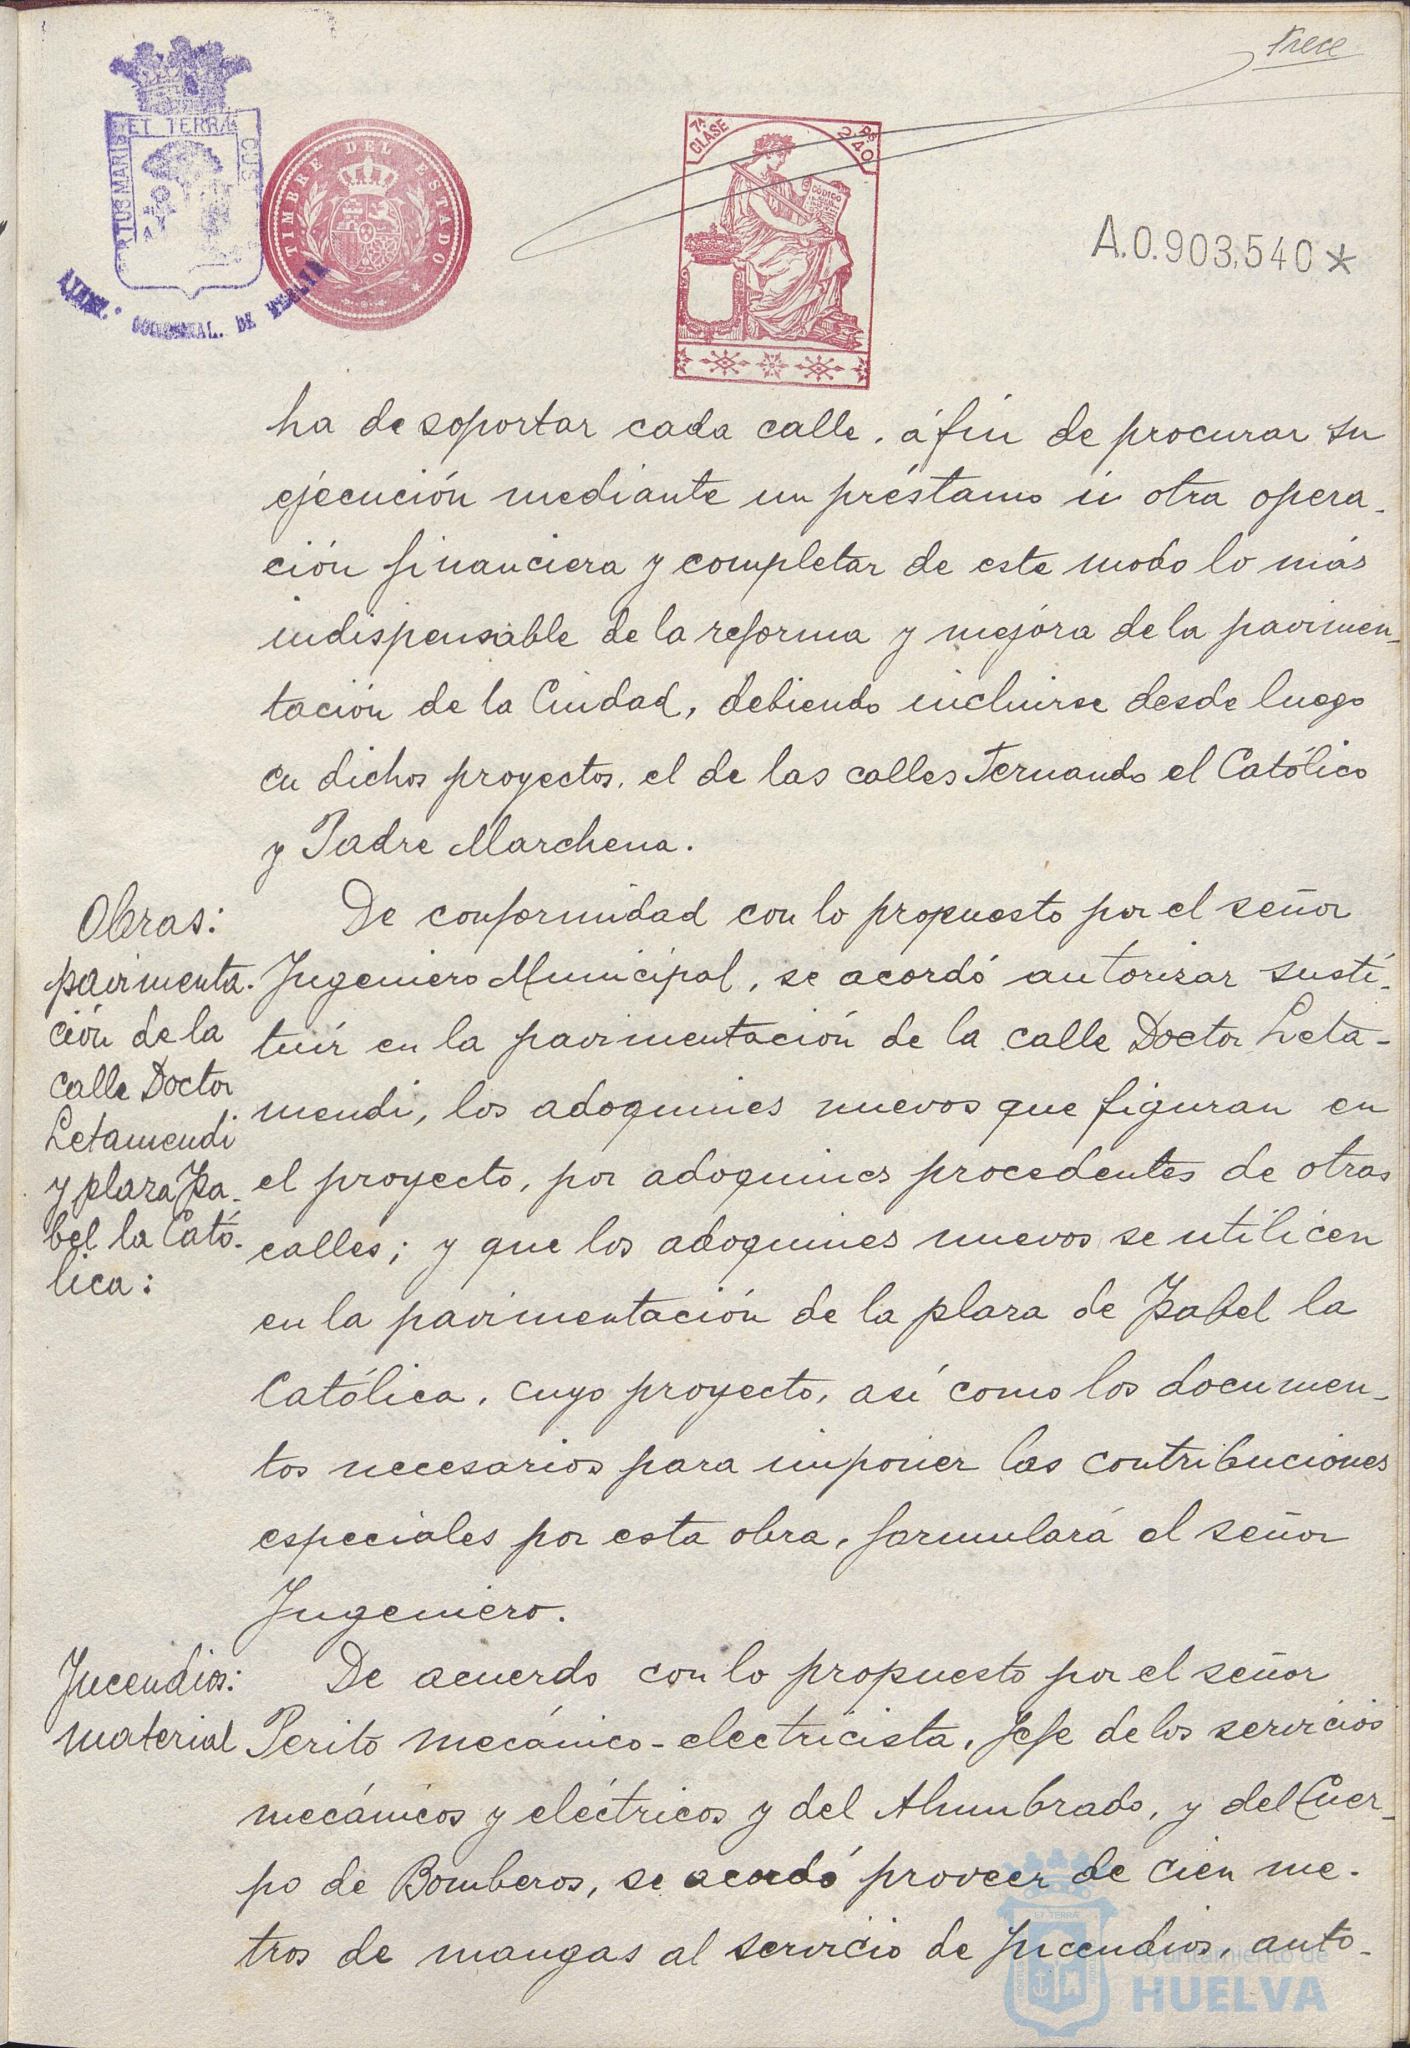 trece
ET TERRAE CUS
PORTUS MARIS
AYUN. CONSTITUCIONAL. DE HUELVA
TIMBRE DEL ESTADO
7ª CLASE
2 PS 40
CÓDIGO
A.0.903,540*
ha de soportar cada calle, á fin de procurar su
ejecución mediante un préstamo ú otra opera-
ción financiera y completar de este modo lo más
indispensable de la reforma y mejora de la pavimen-
tación de la Ciudad, debiendo incluirse desde luego
en dichos proyectos, el de las calles Fernando el Católico
y Padre Marchena.
Obras:
pavimenta-
ción de la
calle Doctor
Letamendi
y plaza Isa-
bel la Cató-
lica:
De conformidad con lo propuesto por el señor
Ingeniero Municipal, se acordó autorizar susti-
tuír en la pavimentación de la calle Doctor Leta-
mendi, los adoquines nuevos que figuran en
el proyecto, por adoquines procedentes de otras
calles; y que los adoquines nuevos se utilicen
en la pavimentación de la plaza de Isabel la
Católica, cuyo proyecto, así como los documen-
tos necesarios para imponer las contribuciones
especiales por esta obra, formulará el señor
Ingeniero.
Incendios:
material
De acuerdo con lo propuesto por el señor
Perito mecánico-electricista, Jefe de los servicios
mecánicos y eléctricos y del Alumbrado, y del Cuer-
po de Bomberos, se acordó proveer de cien me-
tros de mangas al servicio de Incendios, auto-
ET TERRA
Ayuntamiento de
HUELVA